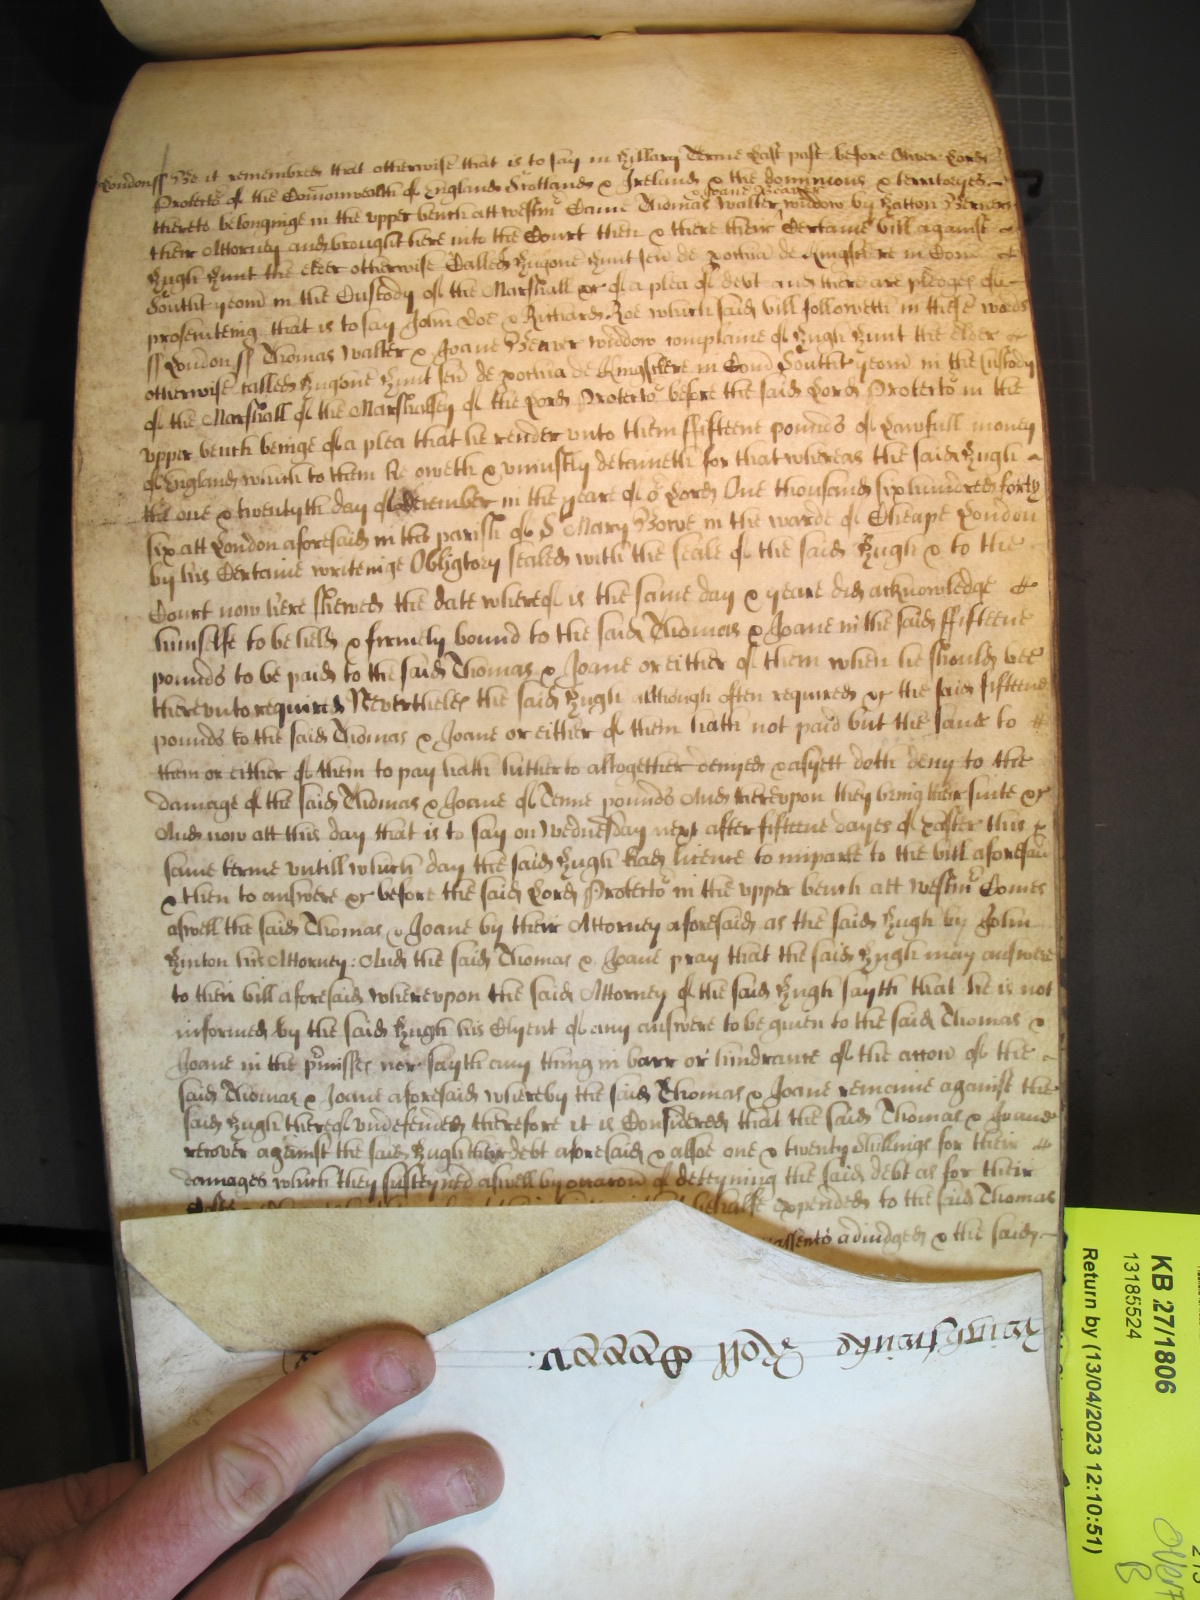 London ss Be it remembred that otherwise that is to say in Hillary Terme last past before Oliver Lord
Protector of the Comonwealth of England Scotland & Ireland & the dominions & territoryes
& Joane Beaver
thereto belonginge in the upper bench att Westmr Came Thomas Walter widdow by Hatton Berners
their Attorney and brought here into the Court then & there their Certaine bill against
Hugh Hunt the elder otherwise Called Hugone Hunt sen de pochia de Kingsclere in Com
Southt yeom in the Custody of the Marshall &c of a plea of debt and there are pledges of
prosecuteing that is to say John Doe & Richard Roe which said bill followeth in these words
ss London ss Thomas Walter & Joane Beaver widdow complaine of Hugh Hunt the elder
otherwise called Hugone Hunt sen de pochia de Kingsclere in Com Southt yeom in the Custody
of the Marshall of the Marshalsey of the Lord Protector before the said Lord Protector in the
upper bench beinge of a plea that he render unto them ffifteene pounds of Lawfull money
of England which to them he oweth & uniustly detaineth for that whereas the said Hugh
the one & twentyth day of December in the yeare of or Lord One thousand six hundred forty
six att London aforesaid in the parish of St Mary Bowe in the warde of Cheape London
by his Certaine writeinge Obligtory sealed with the seale of the said Hugh & to the
Court now here shewed the date whereof is the same day & yeare did acknowledge
himselfe to be held & firmely bound to the said Thomas & Joane in the said ffifteene
pounds to be paid to the said Thomas & Joane or either of them when he should bee
thereunto required Neverthelesse the said Hugh although often required &c the said fifteene
pounds to the said Thomas & Joane or either of them hath not paid but the same to
them or either of them to pay hath hitherto altogether denyed & as yett doth deny to the
damage of the said Thomas & Joane of Tenne pounds And thereupon they bring their suite &c
And now att this day that is to say on Wednesday next after fifteene dayes of Easter this
same terme untill which day the said Hugh had licence to imparle to the bill aforesaid
& then to answere &c before the said Lord Protector in the upper bench att Westmr Comes
aswell the said Thomas & Joane by their Attorney aforesaid as the said Hugh by John
Hinton his Attorney: And the said Thomas & Joane pray that the said Hugh may answere
to their bill aforesaid whereupon the said Attorney of the said Hugh sayth that he is not
informed by the said Hugh his Clyent of any answere to be given to the said Thomas &
Joane in the pmisses nor sayth any thing in barr or hindrance of the accon of the
said Thomas & Joane aforesaid whereby the said Thomas & Joane remaine against the
said Hugh thereof undefended therefore it is Considered that the said Thomas & Joane
recover against the said Hugh their debt aforesaid & alsoe one & twenty shillings for their
damages which they susteyned aswell by occacon of deteyning the said debt as for their
behalfe expended to the said Thomas
assent adiudged & the said
Roll
KB 27/1806
13185524
Return by (13/04/2023 12:10:51)